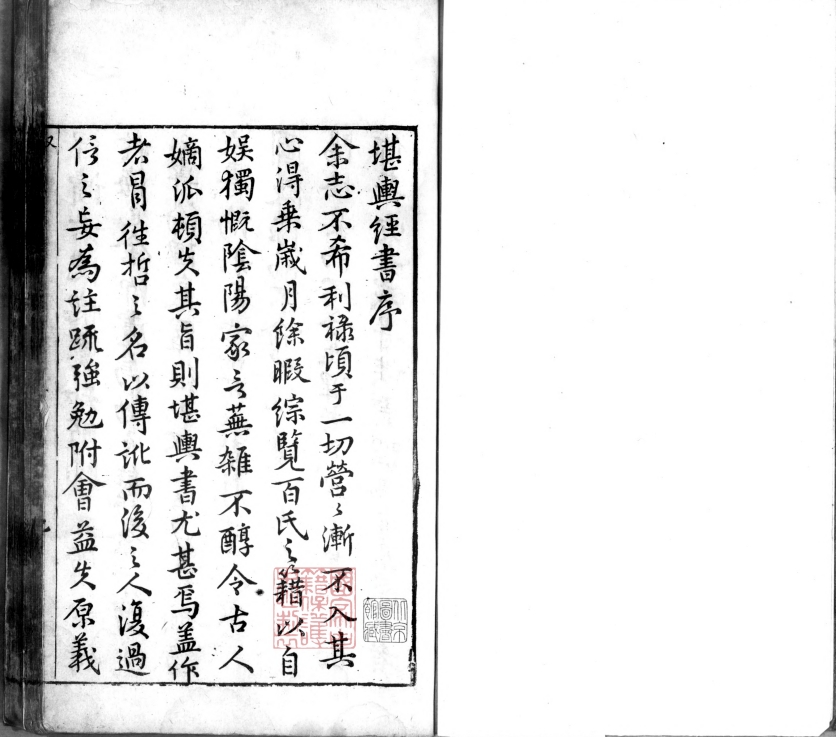 堪輿經書序
余志不希利祿頃于一切營〻漸不入其
心淂乗歲月餘暇綜覽百氏之籍以自
娱獨慨陰陽家言蕪雑不醇令古人
嫡派頓失其旨則堪輿書尤甚焉盖作
者冐徃哲之名以傳訛而後之人復過
信之妄為註疏強勉附會益失原義